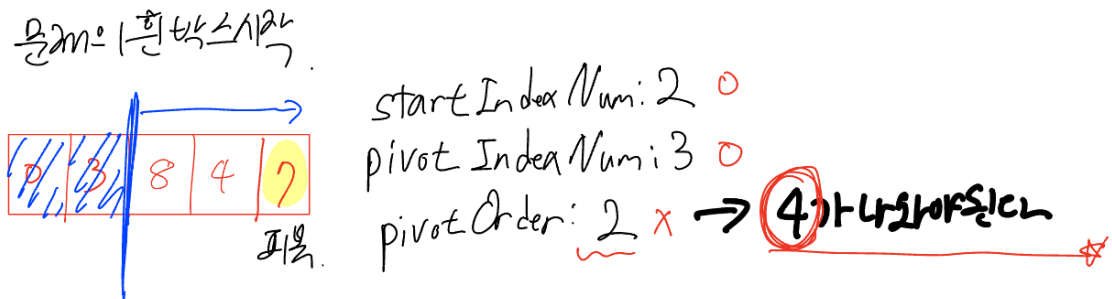 문제의 흰박스시작.
0 3 8 4 7
피봇.
startIndexNum: 2 O
pivotIndexNum: 3 O
pivotOrder: 2 X → 4가 나와야된다